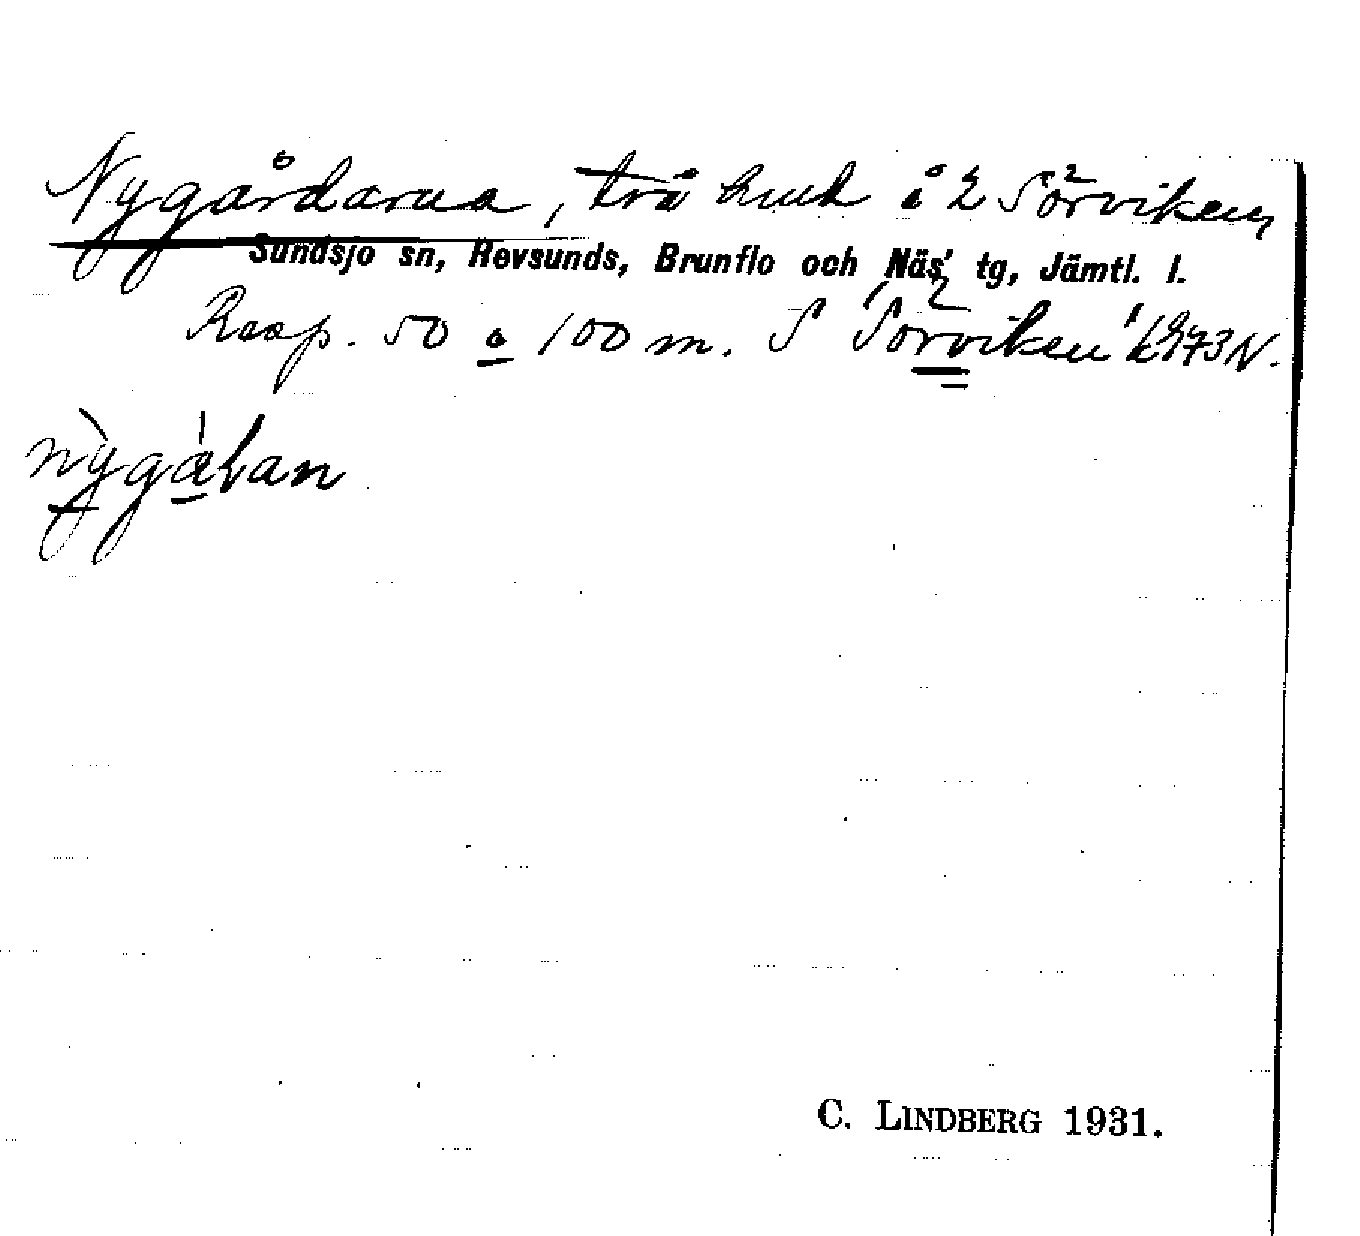 Nygårdarna, två hmd å 2 Sörviken,
Sundsjö sn, Revsunds, Brunflo och Näs' tg, Jämtl. l.
Resp. 50 o 100 m. S Sörviken 1973 N.
nỳgáƚan
C. LINDBERG 1931.